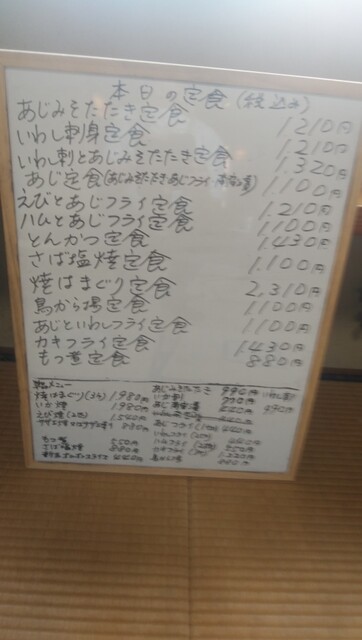 本日の定食(税込み)
あじみそたたき定食 1,210円
いわし刺身定食 1,210円
いわし刺とあじみそたたき定食 1,320円
あじ定食(あじみそたたきあじフライ) 1,100円
えびとあじフライ定食 1,210円
ハムとあじフライ定食 1,100円
とんかつ定食 1,430円
さば塩焼定食 1,100円
焼はまぐり定食 2,310円
鳥から揚定食 1,100円
あじといわしフライ定食 1100円
カキフライ定食 1430円
もつ煮定食 880円
メニュー
焼はまぐり(3ケ) 1,980円
いか焼 1980円
えび焼(2ケ) 1,540円
880円
もつ煮 550円
さば塩焼 880円
440円
あじみそたたき 990円
いか刺
あじフライ 440円
いわしフライ 440円
カキフライ
鳥から揚 880円